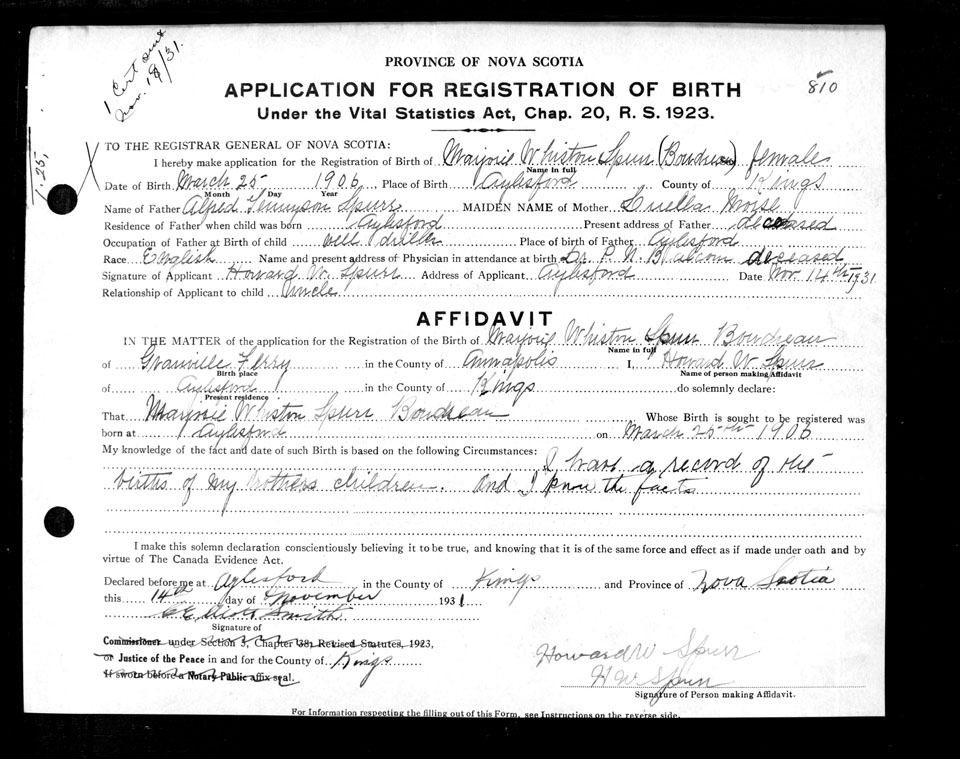 1 Cert sent
Nov. 18/31.
810
1.25,
PROVINCE OF NOVA SCOTIA
APPLICATION FOR REGISTRATION OF BIRTH
Under the Vital Statistics Act, Chap. 20, R. S. 1923.
TO THE REGISTRAR GENERAL OF NOVA SCOTIA:
I hereby make application for the Registration of Birth of Marjorie Whiston Spurr (Boudreau) female
Name in full
Date of Birth March 25 1906 Place of Birth Aylesford County of Kings
Month Day Year
Name of Father Alfred Tennyson Spurr MAIDEN NAME of Mother Luella Morse
Residence of Father when child was born Aylesford Present address of Father deceased
Occupation of Father at Birth of child well driller Place of birth of Father Aylesford
Race English Name and present address of Physician in attendance at birth Dr. P. N. Balcom deceased
Signature of Applicant Howard W. Spurr Address of Applicant Aylesford Date Nov. 14th 1931
Relationship of Applicant to child Uncle
AFFIDAVIT
IN THE MATTER of the application for the Registration of the Birth of Marjorie Whiston Spurr Boudreau
Name in full
of Granville Ferry in the County of Annapolis I, Howard W. Spurr
Birth place Name of person making Affidavit
of Aylesford in the County of Kings do solemnly declare:
Present residence
That Marjorie Whiston Spurr Boudreau Whose Birth is sought to be registered was
born at Aylesford on March 25th 1906
My knowledge of the fact and date of such Birth is based on the following Circumstances: I have a record of the
births of my brothers children. and I know the facts
I make this solemn declaration conscientiously believing it to be true, and knowing that it is of the same force and effect as if made under oath and by
virtue of The Canada Evidence Act.
Declared before me at Aylesford in the County of Kings and Province of Nova Scotia
this 14th day of November 1931
Smith
Signature of
Commissioner under Section 3, Chapter 38, Revised Statutes, 1923,
or Justice of the Peace in and for the County of Kings
If sworn before a Notary Public affix seal.
Howard W Spurr
H W Spurr
Signature of Person making Affidavit.
For Information respecting the filling out of this Form, see Instructions on the reverse side.